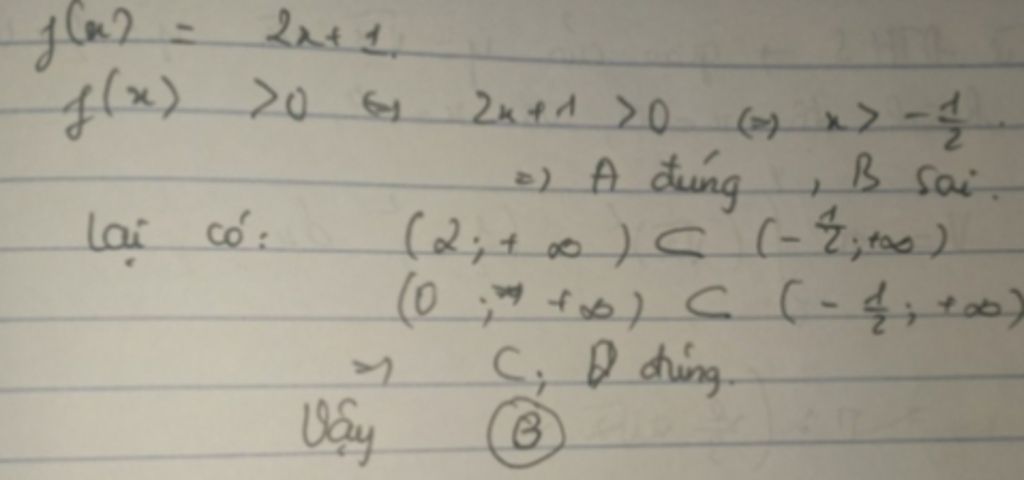 f(x) = 2x+1.
f(x) >0 ⇔ 2x+1 >0 ⇔ x> -1/2.
=> A đúng, B sai.
Lại có: (2;+∞) ⊂ (-1/2;+∞)
(0; +∞) ⊂ (-1/2; +∞)
=> C; D đúng.
Vậy B